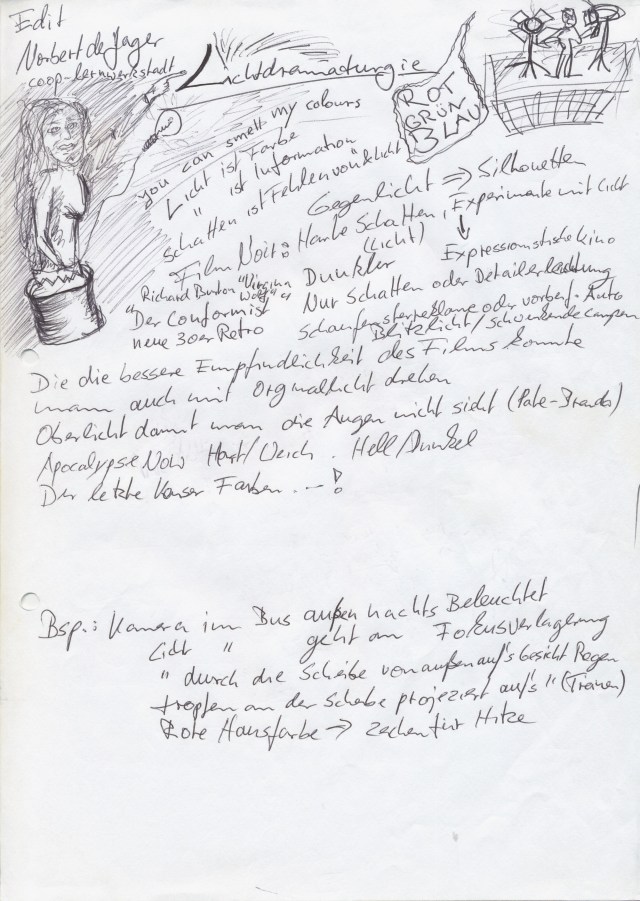 Edit
Norbert de Jager
-coop-lernwerkstadt
Lichtdramaturgie
ROT
GRÜN
BLAU
you can smell my colours
Licht ist Farbe
" ist Information
Schatten ist Fehlen von "Licht
Gegenlicht => Silhouetten
Film Noir: Harte Schatten, Experimente mit Licht
(Licht)
Expressionistische kino
Richard Burton "Virginia Wolf"
Dunkler
Nur Schatten oder Detailerleuchtung
"Der Conformist"
neue 30er Retro
Schaufensterreklame oder vorbeif. Auto
Blitzlicht / schwenkende Lampen
Die die bessere Empfindlichkeit des Films konnte
mann auch mit Orginallicht drehen
Oberlicht damit man die Augen nicht sieht (Pate-Brando)
Apocalypse Now Hart/Weich. Hell/Dunkel
Der letzte Kaiser Farben...!
Bsp.: Kamera im Bus außen nachts Beleuchtet
Licht " geht an Fokusverlagerung
" durch die Scheibe von außen auf's Gesicht Regen
tropfen an der Scheibe projeziert auf's " (Tränen)
Rote Hausfarbe -> Zeichen für Hitze